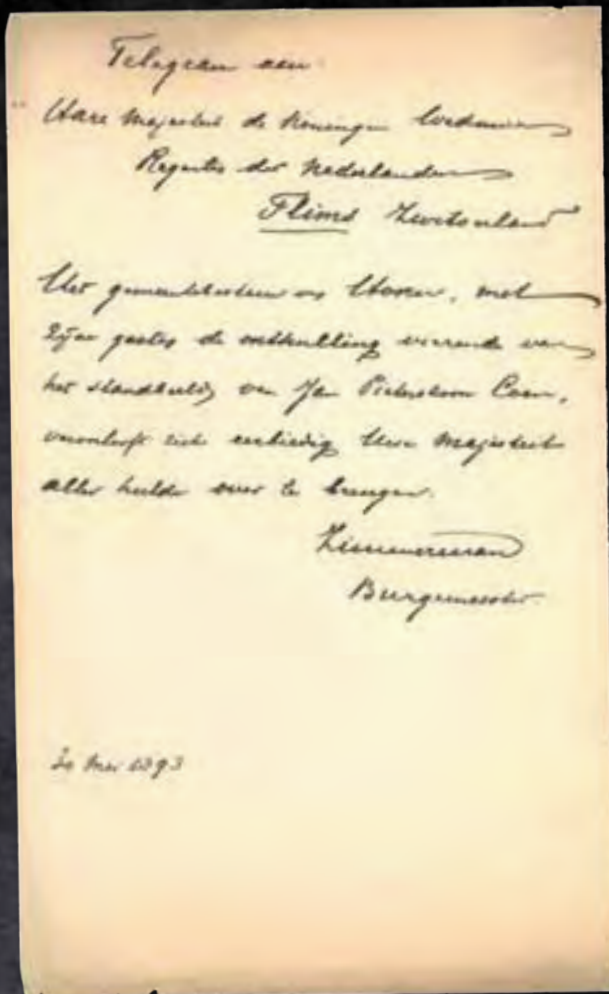 Telegram aan
Hare Majesteit de Koningin Weduwe
Regentes der Nederlanden
Flims Zwitserland
Het gemeentebestuur van Hoorn, met
zijne gasten de onthulling vierende van
het standbeeld van Jan Pieterszoon Coen,
veroorlooft zich eerbiedig Uwe Majesteit
aller hulde over te brengen.
Zimmerman
Burgemeester.
30 Mei 1893